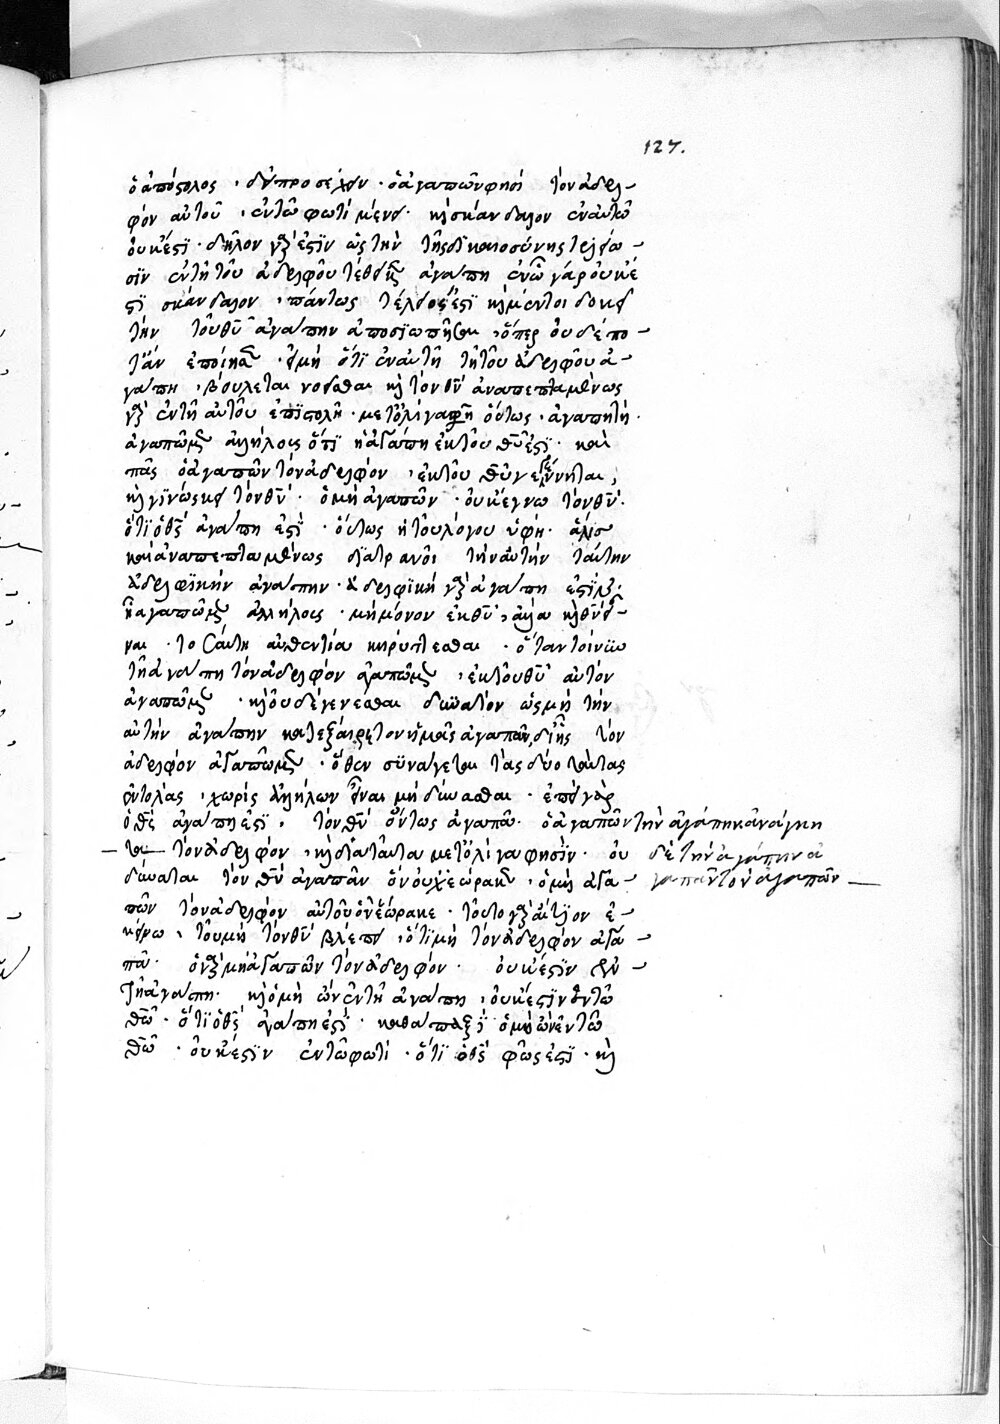 127.
ὁ ἀπόστολος · ὁ ἀγαπῶν φησὶ τὸν ἀδελ-
φὸν αὐτοῦ · ἐν τῶ φωτὶ μένει · καὶ σκάνδαλον ἐν αὐτῶ
οὐκ ἔστι · δῆλον γὰρ ἐστὶν ὡς τὴν τῆς δικαιοσύνης τελείω-
σιν ἐν τῆ τοῦ ἀδελφοῦ ἀγάπη ἐν ᾧ γάρ οὐκ έ
στι σκάνδαλον · πάντως τέλειός ἐστι καὶ μέντοι δοκεῖ
τὴν τοῦ θυ ἀγάπην ἀποσιωπῆσαι · ὅπερ οὐδέ πο-
τ' ἂν ἐποίησεν · εἰ μὴ ὅτι ἐν αὐτῆ τῆ τοῦ ἀδελφοῦ ἀ-
γάπη · βούλεται νοεῖσθαι καὶ τὸν θν ἀναπεπταμένως
γὰρ ἐν τῆ αὐτοῦ ἐπιστολῆ · μετ' ὀλίγα φη οὕτως · ἀγαπητοί ·
ἀγαπῶμεν ἀλλήλους ὅτι ἡ ἀγάπη ἐκ τοῦ θυ ἐστι · καὶ
πᾶς ὁ ἀγαπῶν τὸν ἀδελφὸν · ἐκ τοῦ θυ γεγέννηται ·
καὶ γινώσκει τὸν θν · ὁ μὴ ἀγαπῶν · οὐκ ἔγνω τὸν θν ·
ὅτι ὁ θς ἀγάπη ἐστι · οὕτως ἡ τοῦ λόγου ὑφὴ · ἅλις
καὶ ἀναπεπταμένως διατρανοῖ τὴν αὐτὴν ταύτην
ἀδελφικὴν ἀγάπην · ἀδελφικὴ γὰρ ἀγάπη ἐστὶν
ἀγαπῶμεν ἀλλήλους · μὴ μόνον ἐκ θυ · ἀλλὰ καὶ θν εἶ-
ναι · τοσαύτη αὐθεντία κηρύττεσθαι · ὅταν τοίνυν
τῆ ἀγάπη τὸν ἀδελφὸν ἀγαπῶμεν · ἐκ τοῦ θυ αὐτὸν
ἀγαπῶμεν · καὶ οὐδέ γενέσθαι δυνατὸν ὡς μὴ τὴν
αὐτὴν ἀγάπην κατεξαίρετον ἡμᾶς ἀγαπᾶν, δι' ἧς τὸν
ἀδελφὸν ἀγαπῶμεν · ὅθεν συνάγεται τὰς δύο ταύτας
ἐντολὰς · χωρὶς ἀλλήλων εἶναι μὴ δύνασθαι · ἐπεὶ γὰρ
ὁ θς ἀγάπη ἐστι · τὸν θν ὄντως ἀγαπᾶ · ὁ ἀγαπῶν τὴν ἀγάπην ἀνάγκη
δὲ τὴν ἀγάπην ἀ
γαπᾶν τὸν ἀγαπῶν-
τα τὸν ἀδελφὸν · καὶ διὰ ταῦτα μετ' ὀλίγα φησὶν · οὐ
δύναται τὸν θν ἀγαπᾶν ὃν οὐχ ἑώρακεν · ὁ μὴ ἀγα-
πῶν τὸν ἀδελφὸν αὐτοῦ ὃν ἑώρακε · τοῦτο γὰρ αἴτιον ἐ-
κείνω · τοῦ μὴ τὸν θν βλέπειν · ὅτι μὴ τὸν ἀδελφὸν ἀγα-
πᾶ · ὁ γὰρ μὴ ἀγαπῶν τὸν ἀδελφὸν · οὐκ ἔστιν ἐν
τῆ ἀγάπη · καὶ ὁ μὴ ὢν ἐν τῆ ἀγάπη · οὐκ ἔστιν ἐν τῶ
θω · ὅτι ὁ θς ἀγάπη ἐστι · ὁ μὴ ὢν ἐν τῶ
θω · οὐκ ἔστιν ἐν τῶ φωτὶ · ὅτι ὁ θς φῶς ἐστι · καὶ